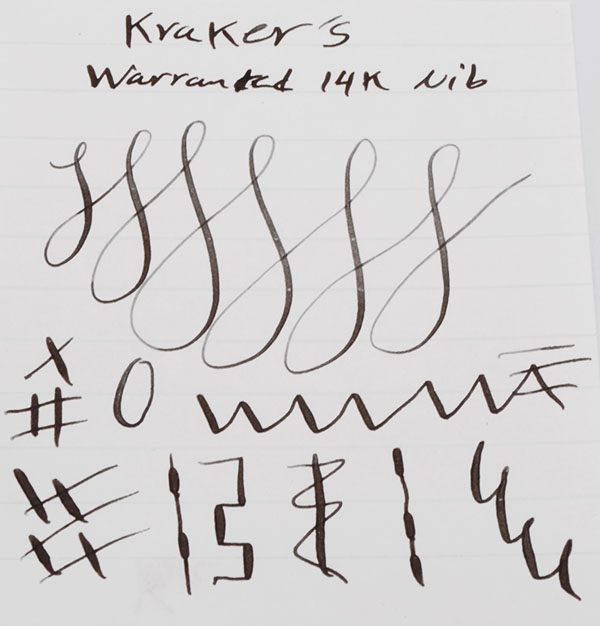 Kraker's
Warranted 14K Nib